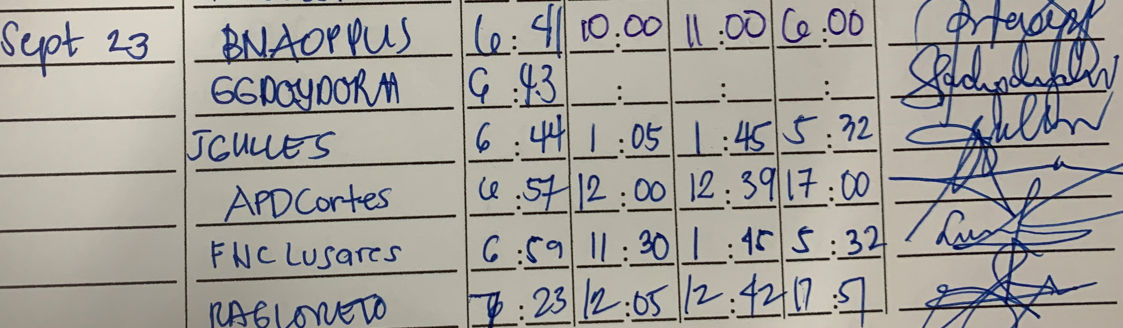 Sept 23 BNAOPPUS 6:41 10:00 11:00 6:00
GGDOYDORA 6:43 : : :
JGULLES 6:44 1:05 1:45 5:32
APDCortes 6:57 12:00 12:39 17:00
FNCLusares 6:59 11:30 1:45 5:32
RAGLORETO :23 12:05 12:42 17:51